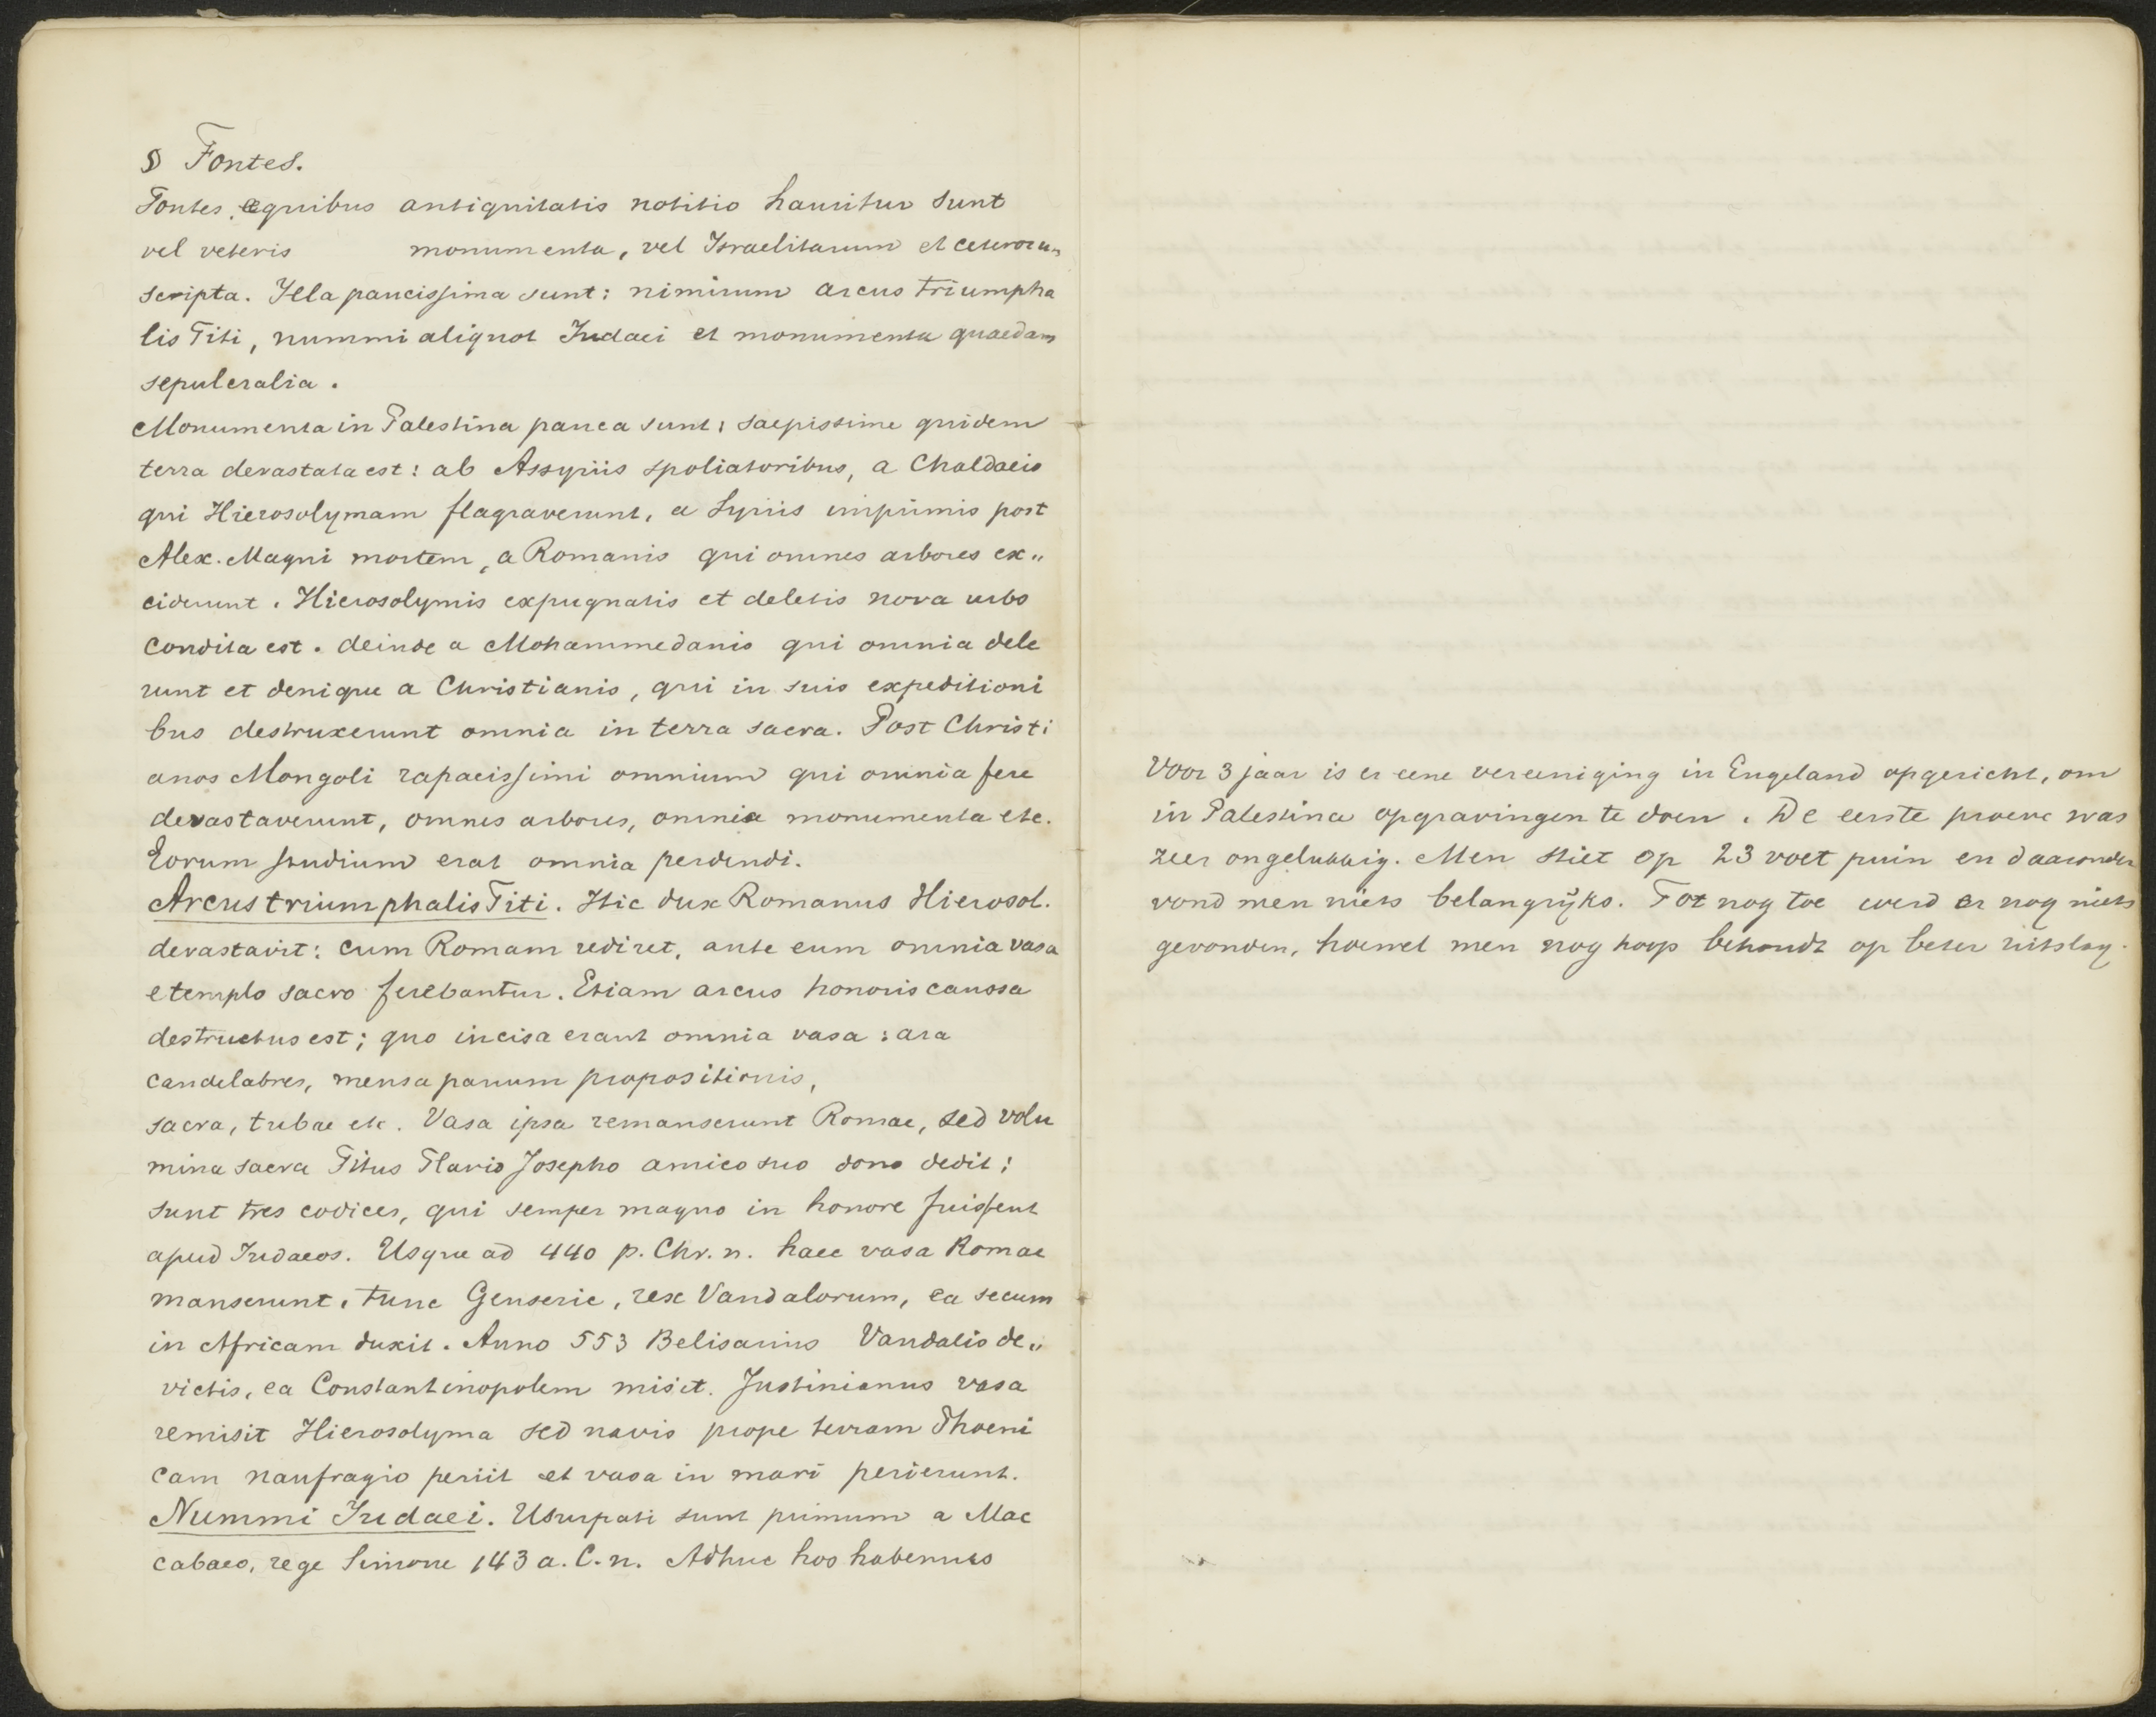 § Fontes.
Fontes, e quibus antiquitatis notitio hauritur sunt
vel veteris monumenta, vel Israelitarum et ceterorum
scripta. Illa paucissima sunt: nimirum arcus triumpha
lis Titi, nummi aliquot Judaei et monumenta quaedam
sepulcralia.
Monumenta in Palestina pauca sunt; saepissime quidem
terra devastata est: ab Assyriis spoliatoribus, a Chaldaeis
qui Hierosolymam flagraverunt, a Syriis imprimis post
Alex. Magni mortem, a Romanis qui omnes arbores ex„
ciderunt. Hierosolymis expugnatis et deletis nova urbs
condita est. deinde a Mohammedanis qui omnia dele
runt et denique a Christianis, qui in suis expeditioni
bus destruxerunt omnia in terra sacra. Post Christi
anos Mongoli rapacissimi omnium qui omnia fere
devastaverunt, omnes arbores, omnia monumenta etc.
Eorum studium erat omnia perdendi.
Arcus triumphalis Titi. Hic dux Romanus Hierosol.
devastavit: cum Romam rediret, ante eum omnia vasa
e templo sacro ferebantur. Etiam arcus honoris caussa
destructus est; quo incisa erant omnia vasa: ara
candelabres, mensa panum propositionis,
sacra, tubae etc. Vasa ipsa remanserunt Romae, sed volu
mina sacra Titus Flavio Josepho amico suo dono dedit;
sunt tres codices, qui semper magno in honore fuissent
apud Judaeos. Usque ad 440 p. Chr. n. haec vasa Romae
manserunt, tunc Genseric, rex Vandalorum, ea secum
in Africam duxit. Anno 553 Belisarius Vandalis de„
victis, ea Constantinopolem misit. Justinianus vasa
remisit Hierosolyma sed navis prope terram Phoeni
cam naufragio periit et vasa in mari perierunt.
Nummi Judaei. Usurpati sunt primum a Mac
cabaeo, rege Simone 143 a. C. n. Adhuc hos habemus
Voor 3 jaar is er eene vereeniging in Engeland opgericht, om
in Palestina opgravingen te doen. De eerste proeve was
zeer ongelukkig. Men stiet op 23 voet puin en daaronder
vond men niets belangrijks. Tot nog toe werd er nog niets
gevonden, hoewel men nog hoop behoudt op beter uitslag.